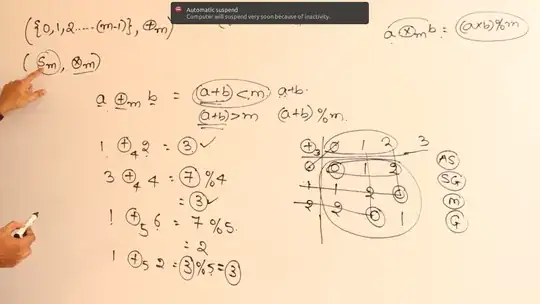 Automatic suspend
Computer will suspend very soon because of inactivity.
({0,1,2.....(m-1)}, ⊕m)
(Sm, ⊗m)
a ⊗m b = (a×b)%m
a ⊕m b = (a+b)<m a+b.
(a+b)>m (a+b)%m.
1 +4 2 = 3 ✓
3 +4 4 = 7 %4
= 3 ✓
1 +5 6 = 7 %5.
= 2
1 +5 2 = 3 %5 = 3
+3 0 1 2 3
0 0 1 2
1 1 2 0
2 2 0 1
AS
SG
M
G